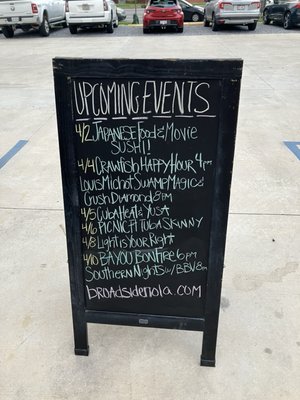 UPCOMING EVENTS
4/2 JAPANESE FOOD & MOVIE
SUSHI!
4/4 CRAWFISH HAPPY HOUR 4pm
LOUIS MICHOT SWAMP MAGIC &
GUSH DIAMOND 8pm
4/5 CUBA HEAT & YUSA
4/6 PICNIC, PI TUBA SKINNY
4/8 LIGHT IS YOUR RIGHT
4/10 BAYOU BONFIRE 6pm
SOUTHERN NIGHTS w/ BBV 8m
broadsidenola.com